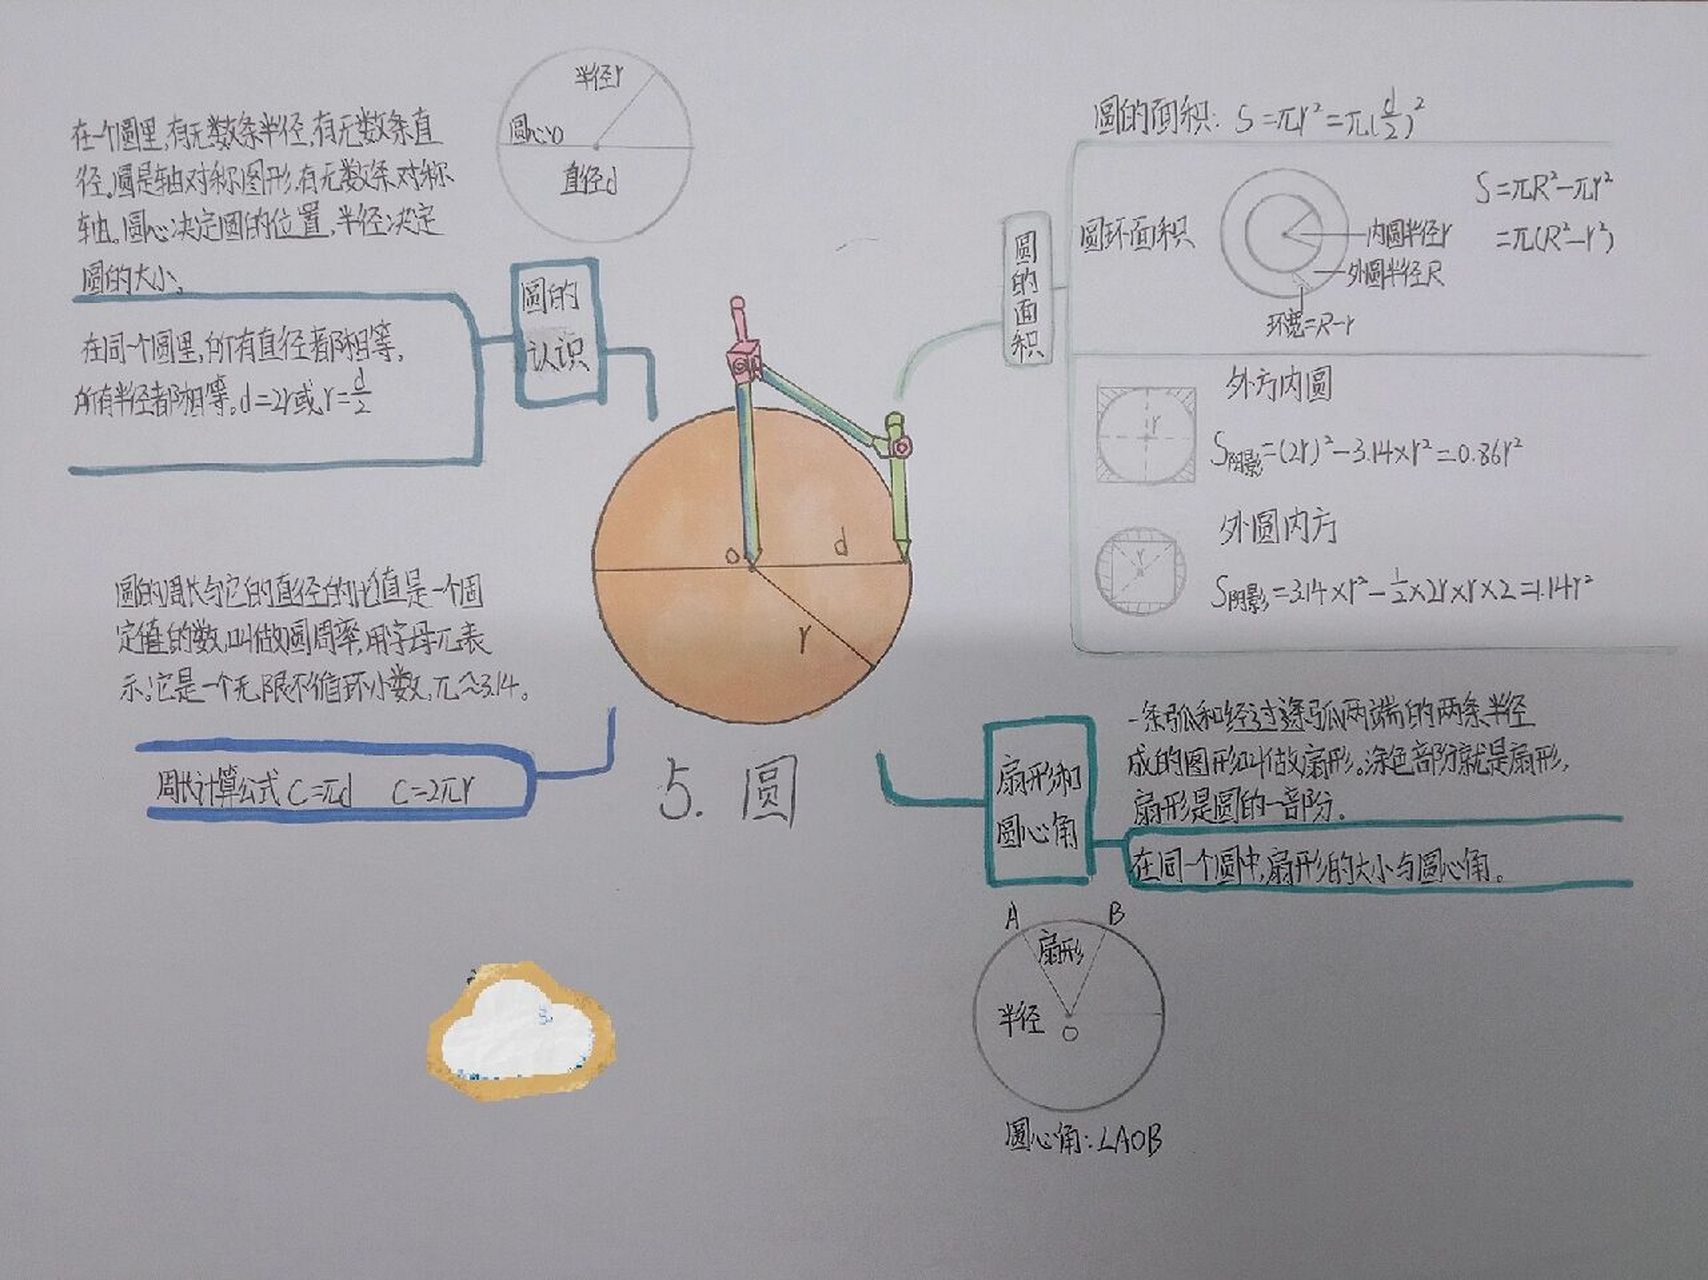 半径r
圆心o
直径d
在一个圆里,有无数条半径,有无数条直
径。圆是轴对称图形,有无数条对称
轴。圆心决定圆的位置,半径决定
圆的大小。
在同一个圆里,所有直径都相等,
所有半径都相等。d=2r或r=d/2
圆的
认识
圆的周长与它的直径的比值是一个固
定值的数,叫做圆周率,用字母π表
示。它是一个无限不循环小数,π≈3.14。
周长计算公式 C=πd C=2πr
o
d
r
5. 圆
圆的面积
圆的面积: S=πr²=π(d/2)²
圆环面积
内圆半径r
外圆半径R
环宽=R-r
S=πR²-πr²
=π(R²-r²)
外方内圆
r
S阴影=(2r)²-3.14×r²=0.86r²
外圆内方
r
S阴影=3.14×r²-1/2×2r×r×2=1.14r²
扇形和
圆心角
一条弧和经过这条弧两端的两条半径
成的图形叫做扇形。涂色部分就是扇形,
扇形是圆的一部分.
在同一个圆中,扇形的大小与圆心角。
A B
扇形
半径
O
圆心角:∠AOB